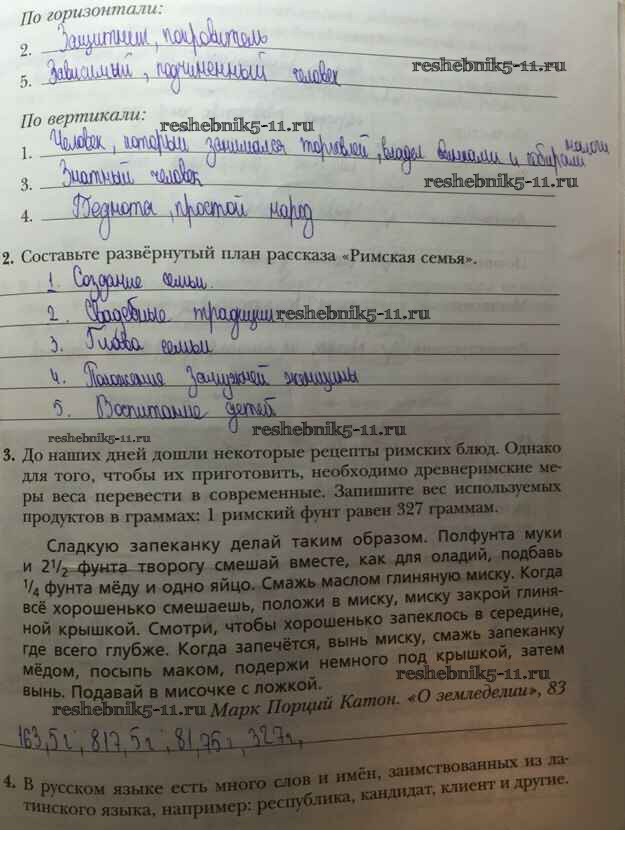 По горизонтали:
2. Защитник, покровитель
5. Зависимый, подчиненный человек
reshebnik5-11.ru
По вертикали:
reshebnik5-11.ru
1. Человек, который занимался торговлей, владел землями и собирали налоги
3. Знатный человек
reshebnik5-11.ru
4. Беднота, простой народ
2. Составьте развёрнутый план рассказа «Римская семья».
1. Создание семьи.
2. Свадебные традиции
reshebnik5-11.ru
3. Глава семьи
4. Положение замужней женщины
5. Воспитание детей
reshebnik5-11.ru
reshebnik5-11.ru
3. До наших дней дошли некоторые рецепты римских блюд. Однако
для того, чтобы их приготовить, необходимо древнеримские ме-
ры веса перевести в современные. Запишите вес используемых
продуктов в граммах: 1 римский фунт равен 327 граммам.
Сладкую запеканку делай таким образом. Полфунта муки
и 2 1/2 фунта творогу смешай вместе, как для оладий, подбавь
1/4 фунта мёду и одно яйцо. Смажь маслом глиняную миску. Когда
всё хорошенько смешаешь, положи в миску, миску закрой глиня-
ной крышкой. Смотри, чтобы хорошенько запеклось в середине,
где всего глубже. Когда запечётся, вынь миску, смажь запеканку
мёдом, посыпь маком, подержи немного под крышкой, затем
вынь. Подавай в мисочке с ложкой.
reshebnik5-11.ru
Марк Порций Катон. «О земледелии», 83
reshebnik5-11.ru
163,5 г; 817,5 г; 81,75 г, 327г,
4. В русском языке есть много слов и имён, заимствованных из ла-
тинского языка, например: республика, кандидат, клиент и другие.